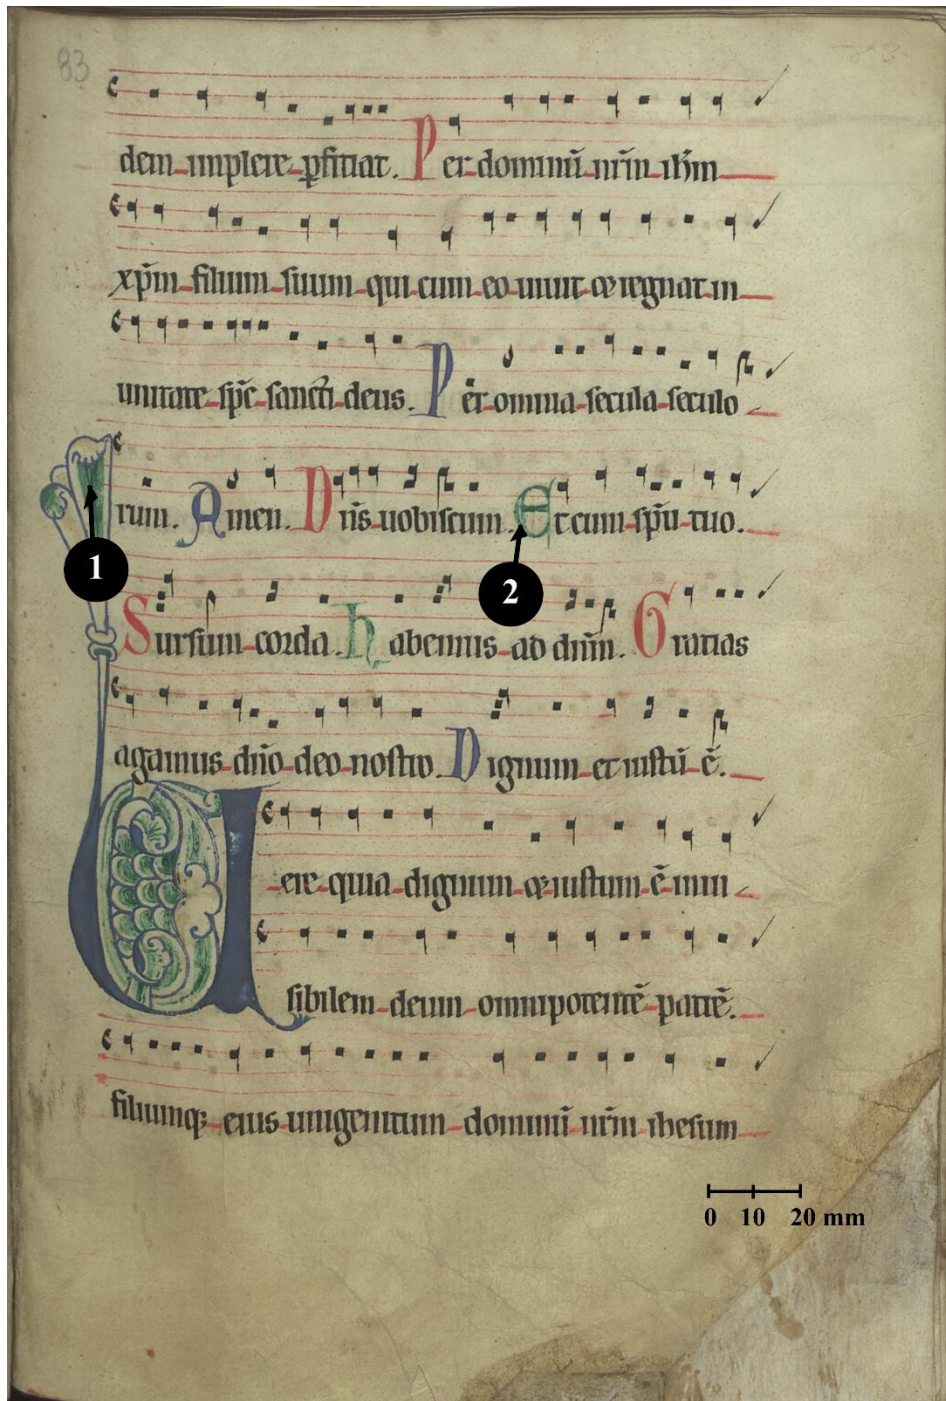 83
dem implere perfitiat. Per dominū nr̄m ih̄m
xp̄m filium suum qui cum eo uiuit et regnat in
unitate sp̄c sancti deus. Per omnia secula seculo
rum. Amen. Dn̄s uobiscum. Et cum sp̄u tuo.
1
2
Sursum corda. habemus ad dn̄m. Gratias
agamus dn̄o deo nostro. Dignum et iustū ē.
Uere quia dignum et iustum ē inui
sibilem deum omnipotentē patrē.
filiumq; eius unigenitum dominū nr̄m ihesum
0 10 20 mm